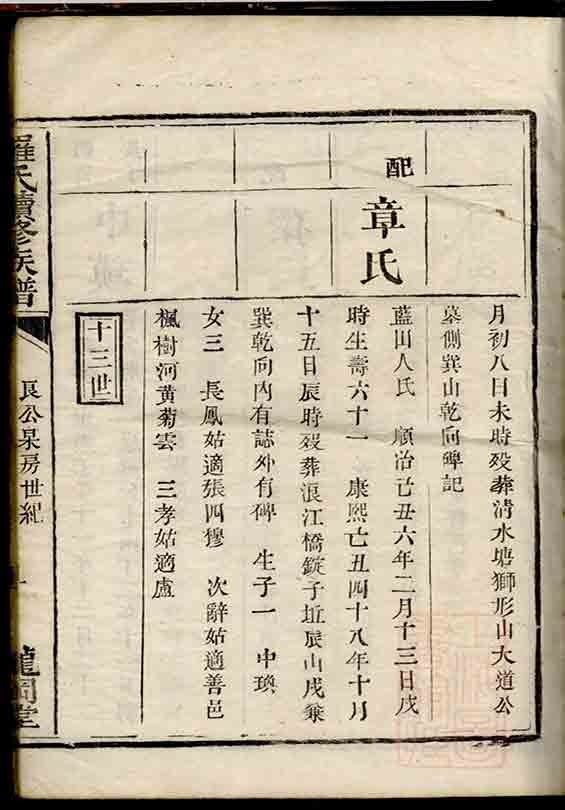 月初八日未時殁葬清水塘獅形山大道公
墓側巽山乾向碑記
配
章氏
藍田人氏 順治己丑六年二月十三日戌
時生壽六十一 康熙己丑四十八年十月
十五日辰時殁葬浪江橋錠子坵辰山戌兼
巽乾向內有誌外有碑 生子一 中瑍
女三 長鳳姑適張四穆 次辭姑適善邑
楓樹河黄菊雲 三孝姑適盧
十三世
羅氏續修族譜
良公杲房世紀
堂